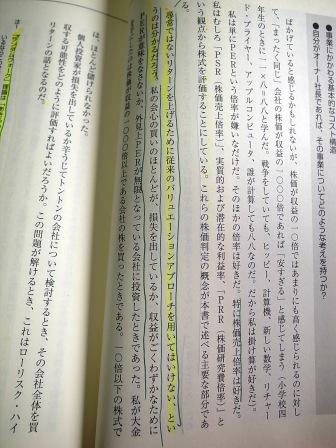 ●事業にかかる基本的なコスト構造
●自分がオーナー社長であれば、その事業についてどのような考えを持つか?
ばかげていると感じるかもしれないが、株価が収益の一〇倍ではあまりにも高く感じられるのに対し
て、「まったく同じ」会社の株価が収益の一〇〇〇倍であれば「安すぎる」と感じてしまう(小学校四
年生のときに一一×八=八八と学んだ。戦争をしていても、ヒッピー、計算機、新しい数学、リチャー
ド・プライヤー、アップルコンピュータ、誰が計算しても八八なのだ。だから私は掛け算が好きだ)。
私は単にPERという倍率が嫌いなだけだ。そのほかの倍率は好きだ。特に株価売上倍率は好きだ。
私はむしろ「PSR(株価売上倍率)」、実質的および潜在的な利益率、「PRR(株価研究費倍率)」と
いう観点から株式を評価することにしている。これらの株価判定の概念が本書で述べる主要な部分であ
る。
尋常ではないリターンを上げるために従来のバリュエーションアプローチを用いてはいけない、とい
うのは分かるだろう。私の会心の買いのほとんどが、損失を出しているか、収益がごくわずかなために
PERが意味をなさないか、外見上PERが無限となっている会社に投資したときであった。私が大金
株価が収益の一〇〇〇倍以上である会社の株を買ったときである。一〇倍以下の株式で
は、ほとんど儲けられなかった。
個人投資家が損失を出しているか辛うじてトントンの会社について検討するとき、その会社全体を買
収する可能性をどのように評価すればよいだろうか。この問題が解けるとき、これはローリスク・ハイ
リターンの話となるのだ。